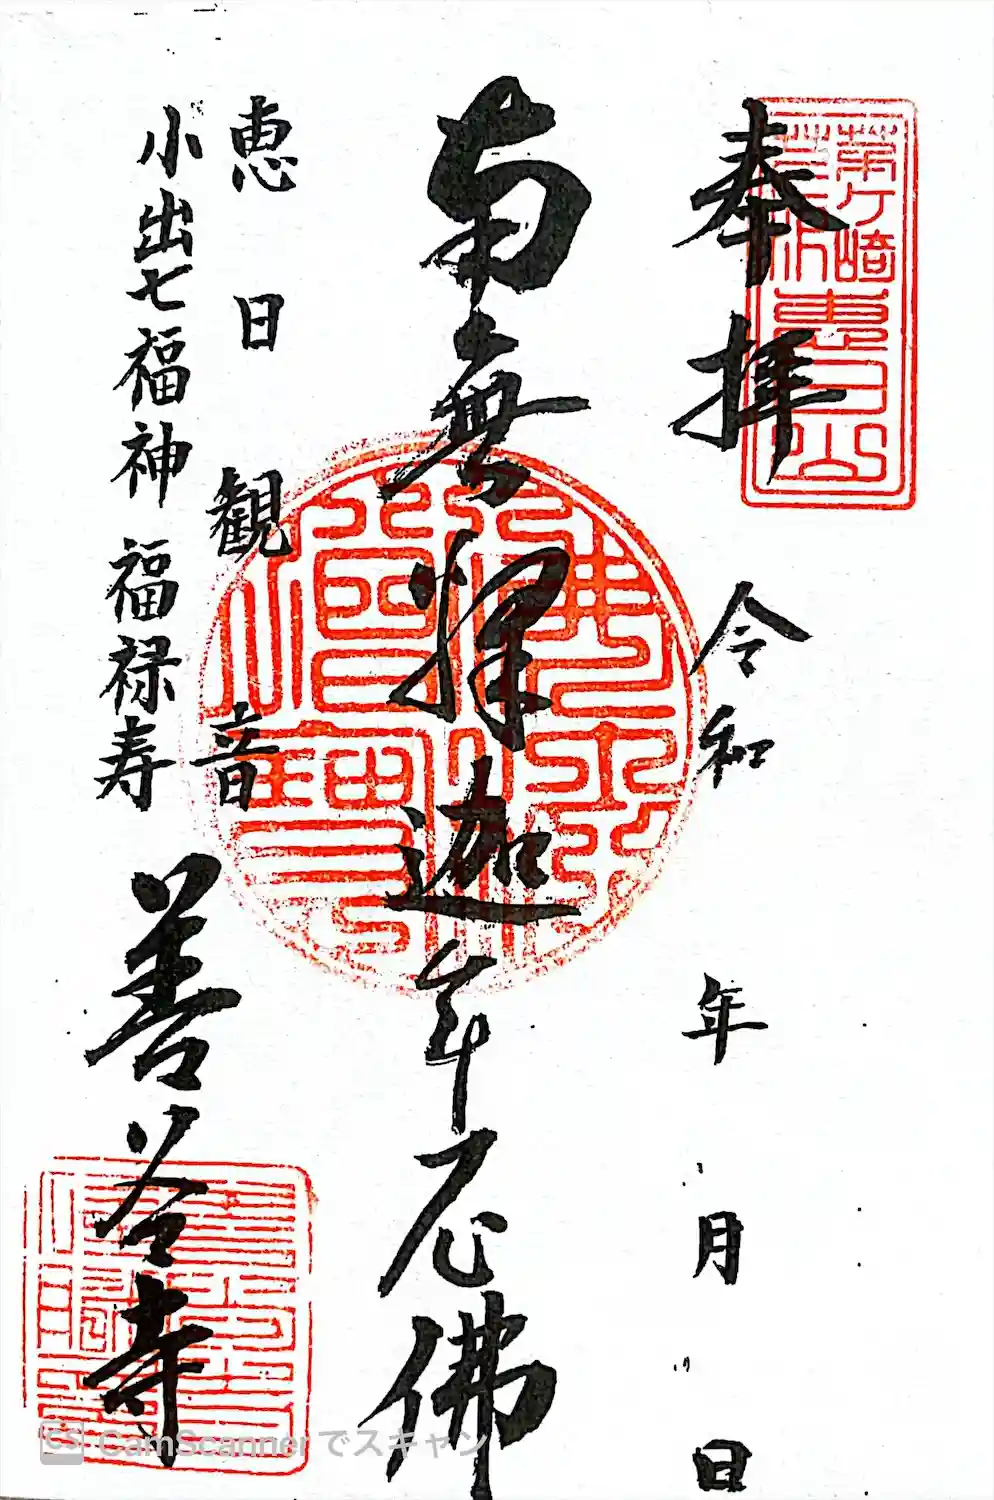 奉拝
令和 年 月 日
茅ヶ崎
南無釋迦牟尼佛
佛法僧寶
恵日観音
小出七福神 福禄寿
善谷寺
CS CamScanner でスキャン